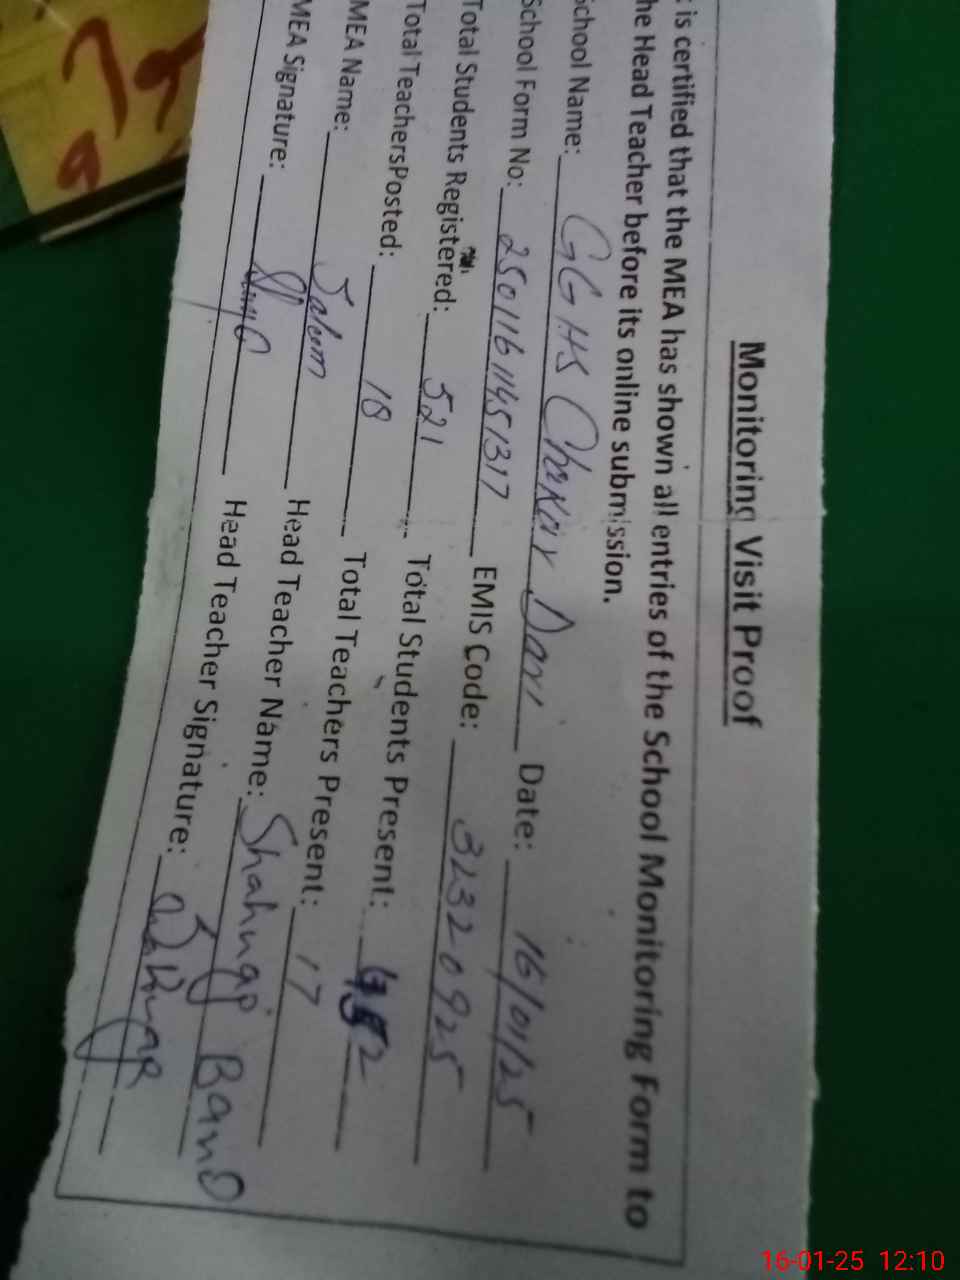 Monitoring Visit Proof
is certified that the MEA has shown all entries of the School Monitoring Form to
he Head Teacher before its online submission.
School Name: GGHS Chakar Dari Date: 16/01/25
School Form No: 25011611451317 EMIS Code: 32320925
Total Students Registered: 521 Total Students Present:
Total TeachersPosted: 18 Total Teachers Present: 17
MEA Name: Saleem Head Teacher Name: Shahnaz Bano
MEA Signature: Head Teacher Signature:
16-01-25 12:10